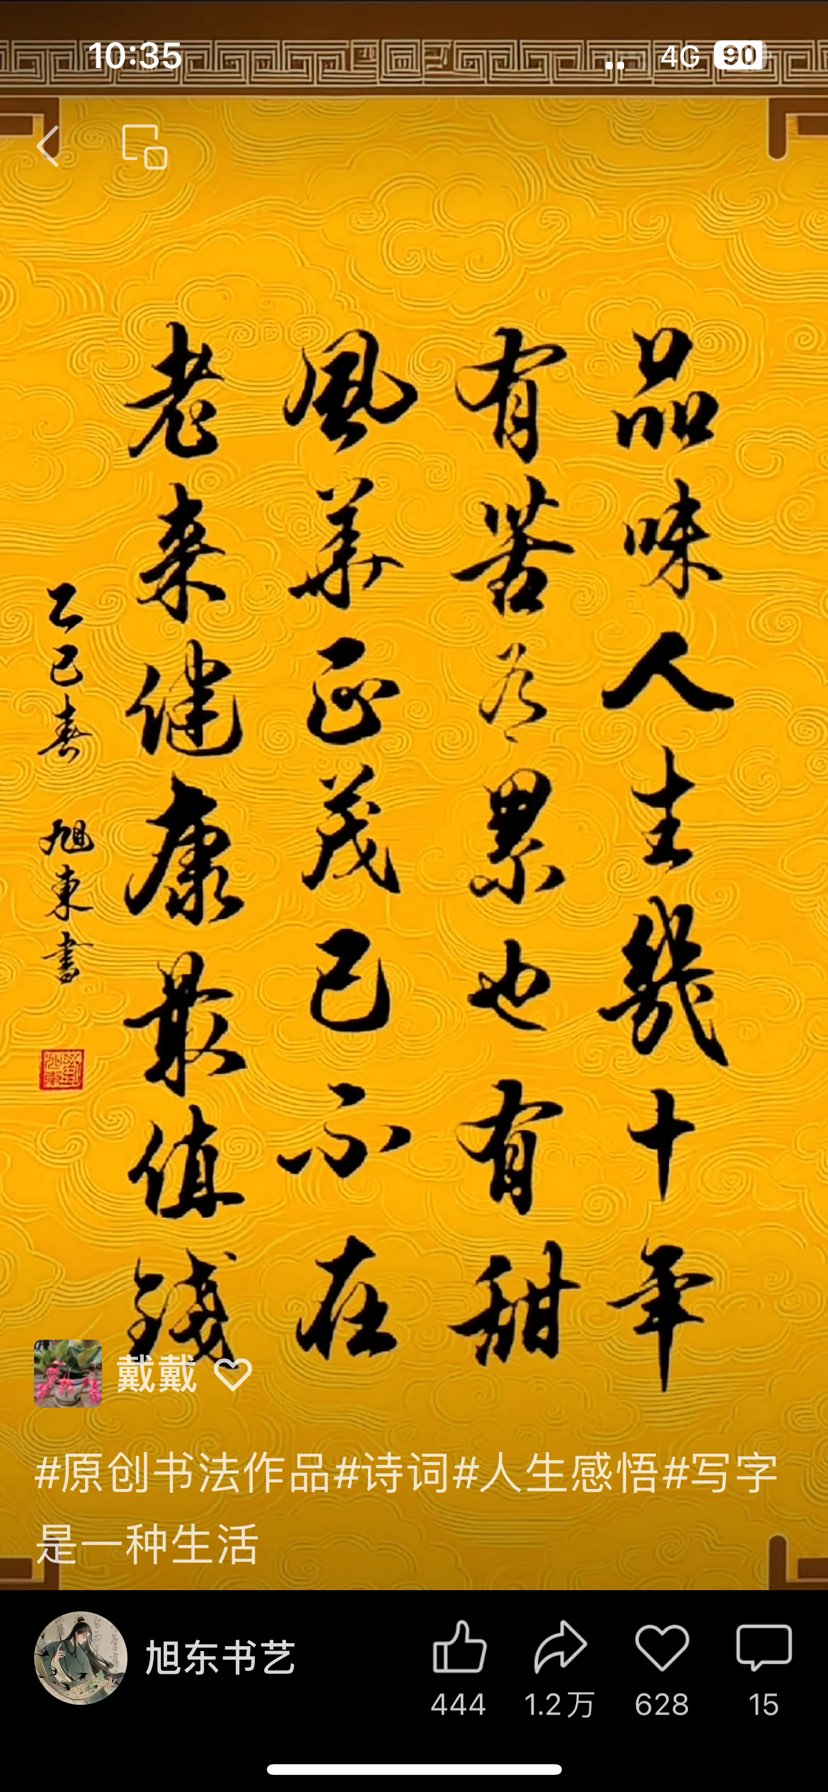 10:35
4G
90
品味人生幾十年
有苦有累也有甜
風華正茂已不在
老来健康最值錢
乙巳春 旭東書
戴戴
#原创书法作品#诗词#人生感悟#写字
是一种生活
旭东书艺
444
1.2万
628
15